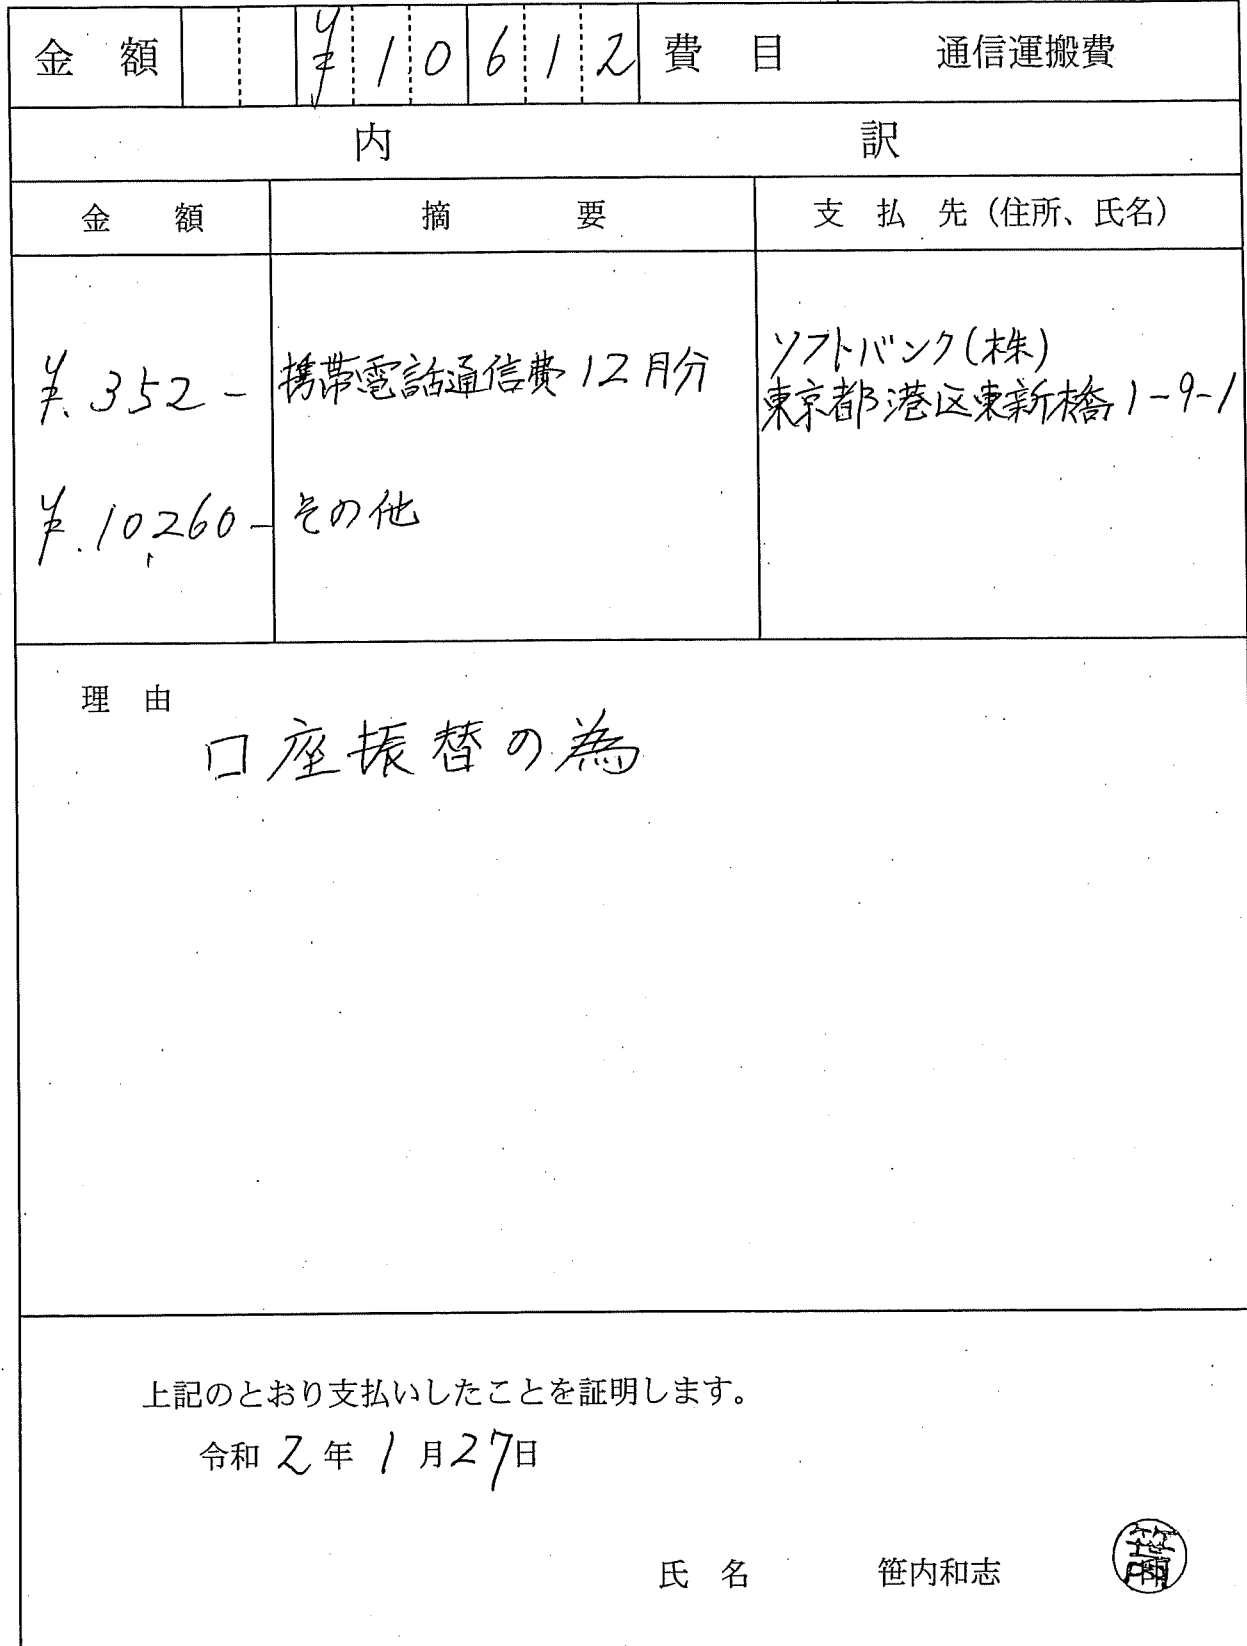 金額 ¥10612 費目 通信運搬費
内訳
金額 摘要 支払先（住所、氏名）
¥.352- 携帯電話通信費12月分 ソフトバンク(株)
東京都港区東新橋1-9-1
¥.10,260- その他
理由
口座振替の為
上記のとおり支払いしたことを証明します。
令和2年1月27日
氏名 笹内和志